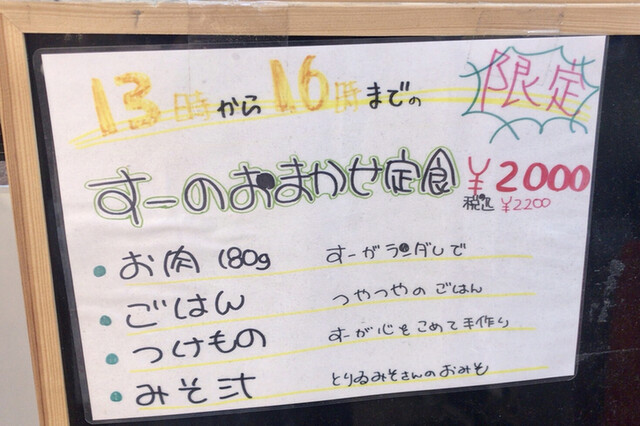 13時から16時までの
限定
すーのおまかせ定食 ¥2000
税込 ¥2200
お肉 180g
ごはん すーがランダムで
つやつやのごはん
つけもの すーが心をこめて手作り
みそ汁 とりゐみそさんのおみそ